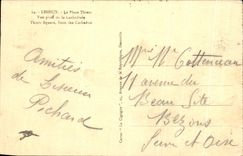 24. - LISIEUX. - La Place Thiers
Vue prise de la Cathédrale
Thiers Square, from the Cathedral
Amitiés
de Lisieux
Pichard
Mr Me Cottenceau
11 avenue du
Beau Site
Bezons
Seine et Oise